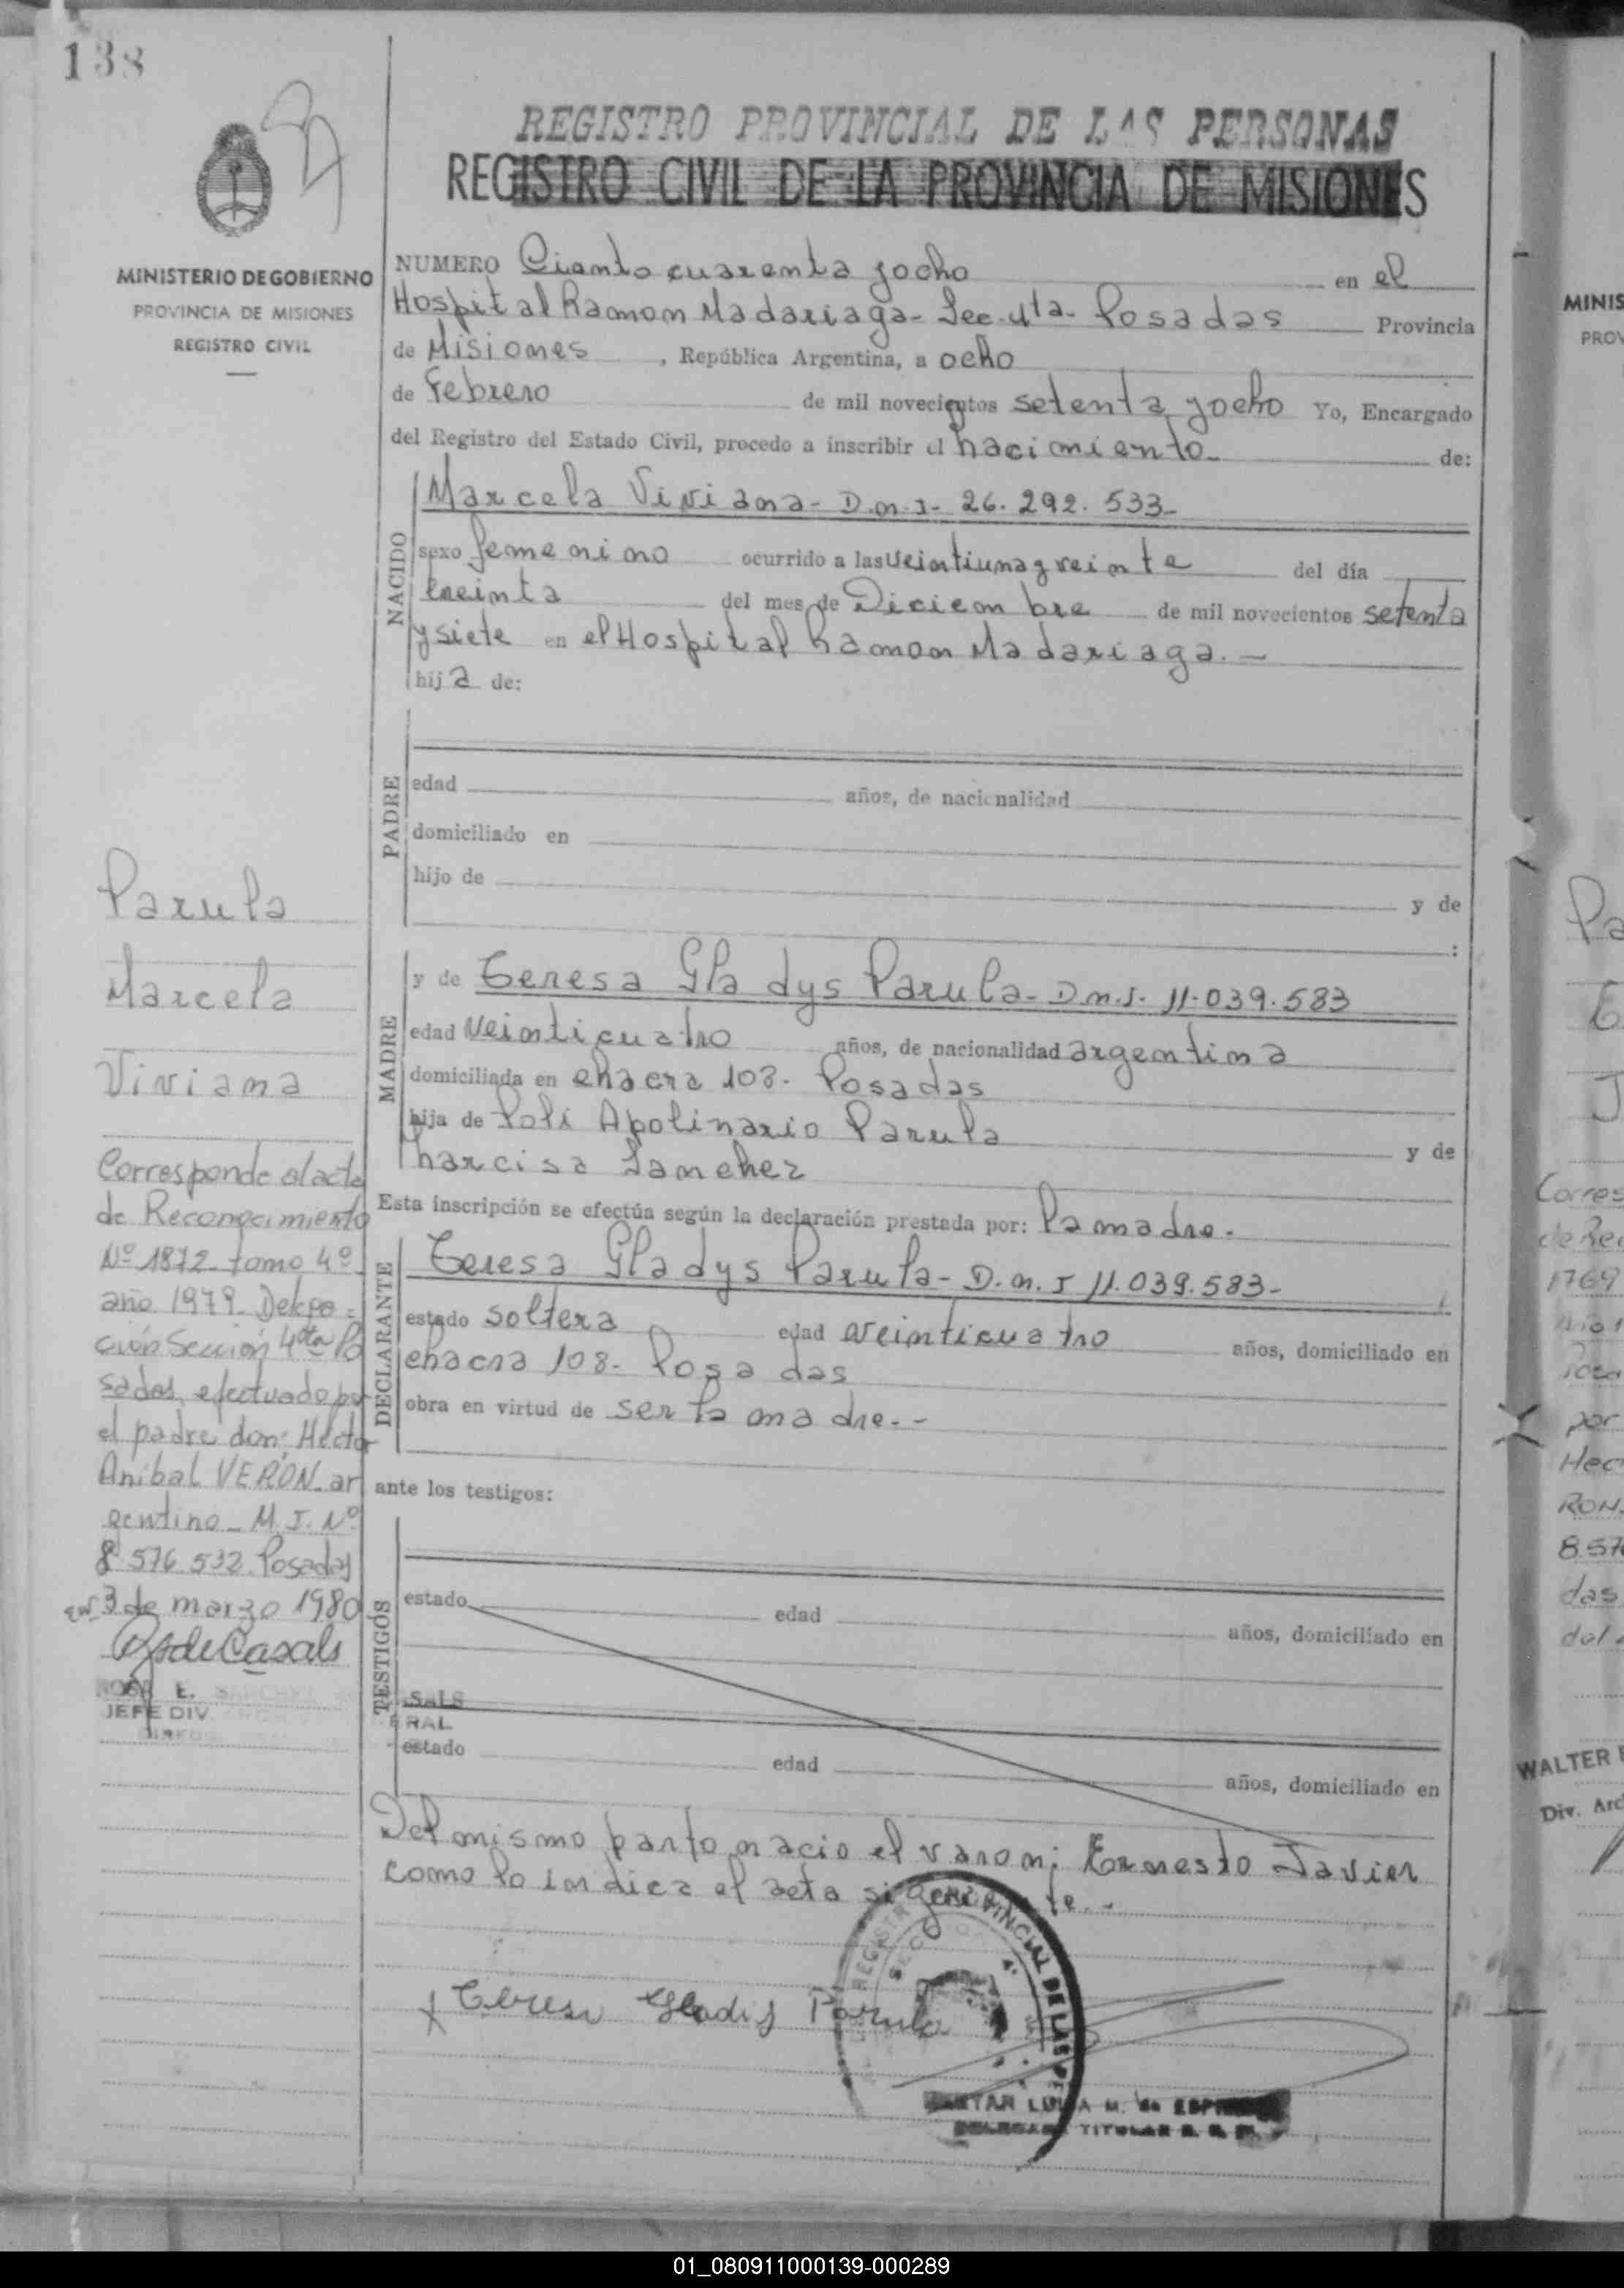 138
REGISTRO PROVINCIAL DE LAS PERSONAS
REGISTRO CIVIL DE LA PROVINCIA DE MISIONES
MINISTERIO DE GOBIERNO
PROVINCIA DE MISIONES
REGISTRO CIVIL
NUMERO Ciento cuarenta yocho en el
Hospital Ramon Madariaga - Sec. 4ta - Posadas Provincia
de Misiones, República Argentina, a ocho
de Febrero de mil novecientos setenta yocho Yo, Encargado
del Registro del Estado Civil, procedo a inscribir el nacimiento de:
NACIDO
Marcela Viviana - D.n.i - 26.292.533 -
sexo femenino ocurrido a las veintiuna y veinte del día
treinta del mes de Diciembre de mil novecientos setenta
y siete en el Hospital Ramon Madariaga. -
hija de:
PADRE
edad años, de nacionalidad
domiciliado en
hijo de y de
:
MADRE
y de Teresa Gladys Parula - D.n.i. 11.039.583
edad veinticuatro años, de nacionalidad argentina
domiciliada en chacra 108 - Posadas
hija de Poli Apolinario Parula y de
Narcisa Sanchez
Esta inscripción se efectúa según la declaración prestada por: la madre.
DECLARANTE
Teresa Gladys Parula - D.n.i 11.039.583 -
estado soltera edad veinticuatro años, domiciliado en
chacra 108 - Posadas
obra en virtud de ser la madre. -
ante los testigos:
TESTIGOS
estado edad años, domiciliado en
estado edad años, domiciliado en
Del mismo parto nacio el varon: Ernesto Javier
como lo indica el acta siguiente. -
x Teresa Gladis Parula
Parula
Marcela
Viviana
Corresponde al acta
de Reconocimiento
Nº 1872 tomo 4º
año 1979 Delega=
ción Sección 4ta Po
sadas, efectuado por
el padre don: Hector
Anibal VERÓN - ar
gentino - M.I. Nº
8 576 532 Posadas
3 de marzo 1980
ROSA E.
JEFE DIV.
SALS
ERAL
REGISTRO PROVINCIAL DE LAS
LUISA M. de
TITULAR
MINIS
PROV
Pa
E
J
Corres
de Rec
1769
por
Hec
RON.
8.57
das
del
WALTER
Div. Arc
01_080911000139-000289